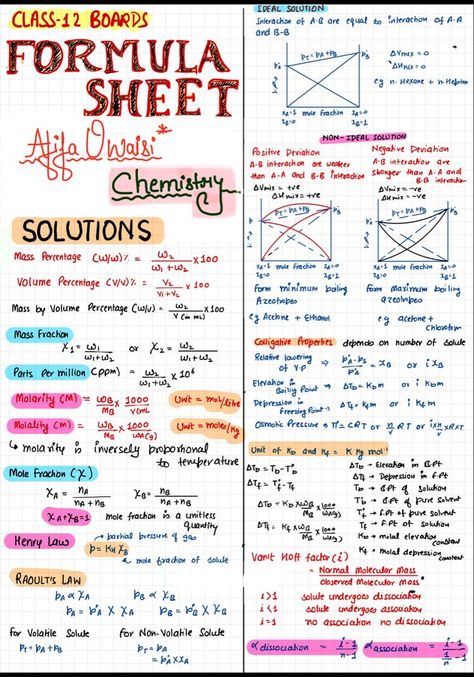 CLASS-12 BOARDS
FORMULA
SHEET
Atifa Owaisi
Chemistry
SOLUTIONS
Mass Percentage (w/w)% = w₂/(w₁+w₂) ×100
Volume Percentage (V/V)% = V₂/(V₁+V₂) ×100
Mass by Volume Percentage (w/v) = w₂/V (in mL) ×100
Mass Fraction
x₁ = w₁/(w₁+w₂) or x₂ = w₂/(w₁+w₂)
Parts Per million (ppm) = w₂/(w₁+w₂) ×10⁶
Molarity (M) = wB/MB × 1000/VmL Unit = mol/litre
Molality (m) = wB/MB × 1000/WA(g) Unit = moles/Kg
↳ molarity is inversely proportional
to temperature
Mole Fraction (χ)
χA = nA/(nA+nB) χB = nB/(nA+nB)
χA+χB=1 mole fraction is a unitless
quantity
Henry Law
→ partial pressure of gas
p = KH χB
↳ mole fraction of solute
RAOULT'S LAW
pA ∝ χA pB ∝ χB
pA = p°A × χA pB = p°B × χB
for Volatile Solute for Non-Volatile Solute
pT = pA+pB pT = pA
= p°A × χA
IDEAL SOLUTION
Interaction of A-B are equal to interaction of A-A
and B-B
pT = pA+pB
p°B
ΔVmix = 0
ΔHmix = 0
eg n-Hexane + n-Heptane
χA=1 mole fraction χA=0
χB=0 χB=1
NON-IDEAL SOLUTION
Positive Deviation
A-B interaction are weaker
than A-A and B-B interaction
ΔVmix = +ve
ΔHmix = +ve
pT = pA+pB
p°B
χA=1 mole fraction χA=0
χB=0 χB=1
form minimum boiling
Azeotropes
eg Acetone + Ethanol
Negative Deviation
A-B interaction are
stronger than A-A and
B-B interaction
ΔVmix = -ve
ΔHmix = -ve
pT = pA+pB
p°B
χA=1 mole fraction χA=0
χB=0 χB=1
form maximum boiling
Azeotropes
eg acetone +
chloroform
Colligative Properties depends on number of solute
Relative lowering
of V.P ⇒ or i χB
Elevation in
Boiling Point ⇒ ΔTb = Kb m or i Kb m
Depression in
freezing Point ⇒ ΔTf = Kf m or i Kf m
Osmotic Pressure ⇒ π = CRT or n/V RT or i×n/V×RT
Unit of Kb and Kf = K Kg mol⁻¹
ΔTb = Tb - T°b
ΔTf = T°f - Tf
ΔTb = Kb × wB/MB × 1000/WA(g)
ΔTf = Kf × wB/MB × 1000/WA(g)
ΔTb → Elevation in B.Pt
ΔTf → Depression in F.Pt
Tb → B.Pt of solution
T°b → B.Pt of pure solvent
T°f → F.Pt of pure solvent
Tf → F.Pt of solution
Kb → molal elevation
constant
Kf → molal depression
constant
Vant Hoff factor (i)
= Normal molecular mass
observed molecular mass
i>1 solute undergoes dissociation
i<1 solute undergoes association
i=1 no association no dissociation
α dissociation = (i-1)/(n-1) α association = (i-1)/(1/n - 1)